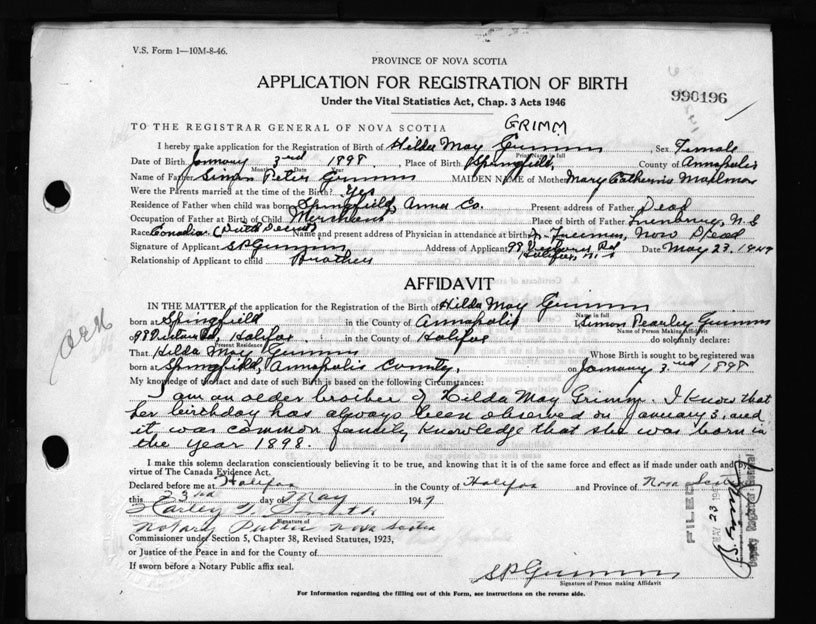 V.S. Form 1—10M-8-46.
PROVINCE OF NOVA SCOTIA
APPLICATION FOR REGISTRATION OF BIRTH
Under the Vital Statistics Act, Chap. 3 Acts 1946
990196
GRIMM
TO THE REGISTRAR GENERAL OF NOVA SCOTIA
I hereby make application for the Registration of Birth of Hilda May Grimm, Sex Female
Print Name in full
Date of Birth January 3rd 1898, Place of Birth Springfield, County of Annapolis
Month Date Year
Name of Father Simon Peter Grimm MAIDEN NAME of Mother Mary Catherine
Were the Parents married at the time of the Birth? Yes
Residence of Father when child was born Springfield, Anna Co. Present address of Father Dead
Occupation of Father at Birth of Child Merchant Place of birth of Father Lunenburg, N.S
Race Canadian (Dutch Descent) Name and present address of Physician in attendance at birth J. Freeman, Now Dead
Signature of Applicant S P Grimm Address of Applicant 98 Halifax, N.S Date May 23, 1947
Relationship of Applicant to child Brother
AFFIDAVIT
IN THE MATTER of the application for the Registration of the Birth of Hilda May Grimm
Name in full
born at Springfield in the County of Annapolis Simon Pearley Grimm
Name of Person Making Affidavit
of 98 Halifax in the County of Halifax do solemnly declare:
Present Residence
That Hilda May Grimm Whose Birth is sought to be registered was
born at Springfield, Annapolis County, on January 3rd 1898
My knowledge of the fact and date of such Birth is based on the following Circumstances:
I am an older brother of Hilda May Grimm. I know that
her birthday has always been observed on January 3, and
it was common family knowledge that she was born in
the year 1898.
I make this solemn declaration conscientiously believing it to be true, and knowing that it is of the same force and effect as if made under oath and by
virtue of The Canada Evidence Act.
Declared before me at Halifax in the County of Halifax and Province of Nova Scotia
this 23rd day of May 1947
Harley Smith
Signature of
Notary Public Nova Scotia
Commissioner under Section 5, Chapter 38, Revised Statutes, 1923,
or Justice of the Peace in and for the County of
If sworn before a Notary Public affix seal.
FILED
MAY 23
Deputy Registrar General
S P Grimm
Signature of Person making Affidavit
For Information regarding the filling out of this Form, see instructions on the reverse side.